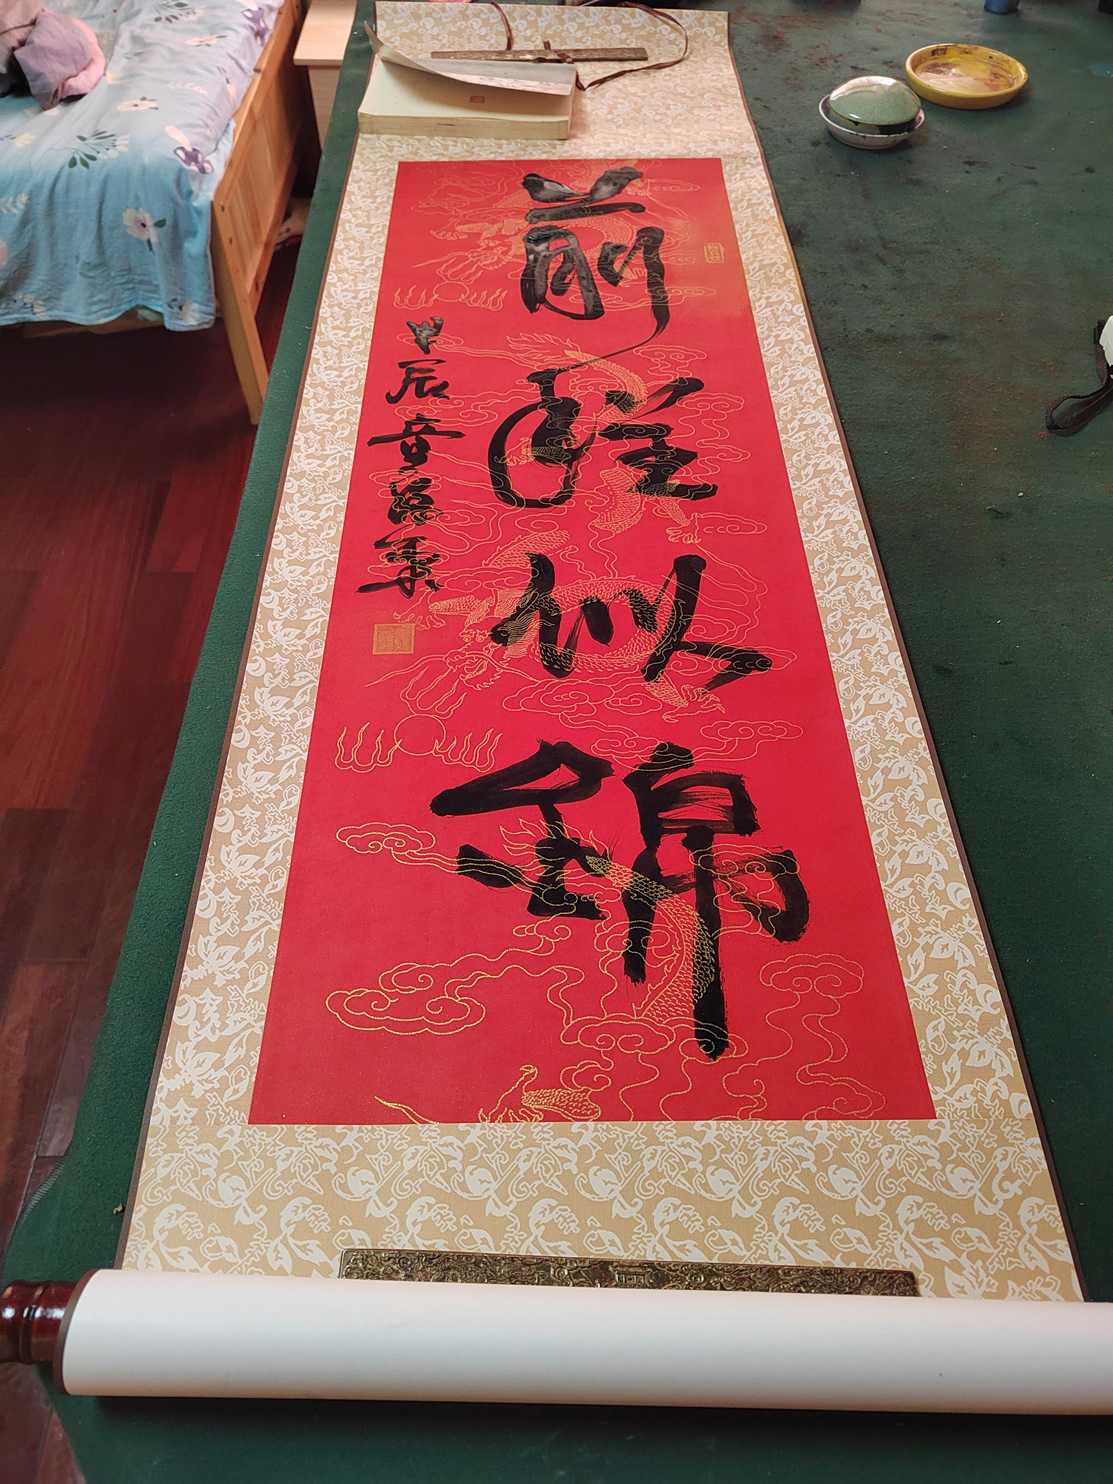 前程似锦
甲辰